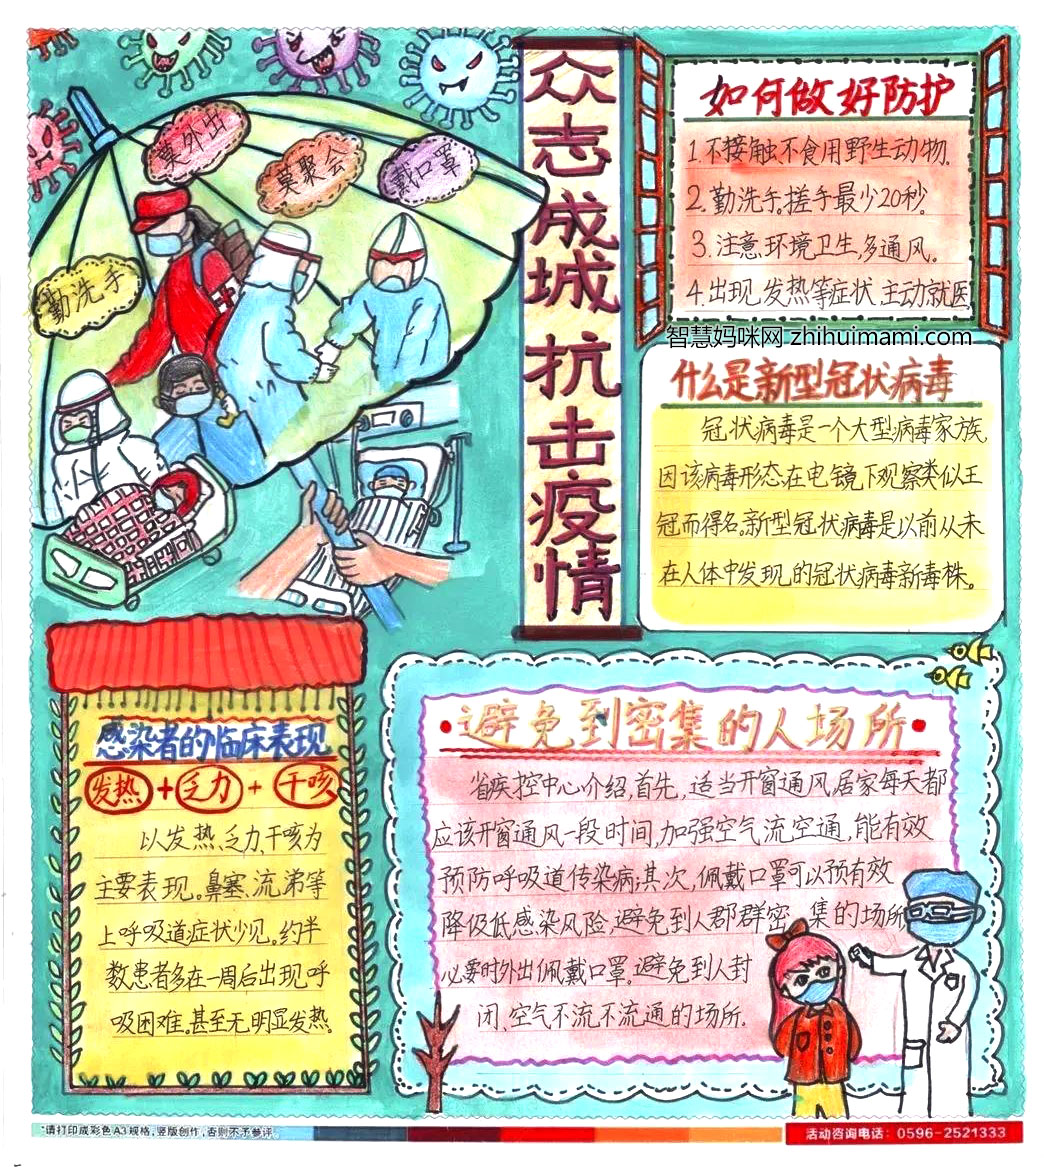 莫外出
莫聚会
戴口罩
勤洗手
众志成城 抗击疫情
如何做好防护
1.不接触,不食用野生动物.
2.勤洗手。搓手最少20秒.
3.注意环境卫生,多通风。
4.出现发热等症状主动就医
智慧妈咪网 zhihuimami.com
什么是新型冠状病毒
冠状病毒是一个大型病毒家族,
因该病毒形态在电镜下观察类似王
冠而得名。新型冠状病毒是以前从未
在人体中发现的冠状病毒新毒株。
感染者的临床表现
发热+乏力+干咳
以发热、乏力、干咳为
主要表现。鼻塞、流涕等
上呼吸道症状少见。约半
数患者多在一周后出现呼
吸困难.甚至无明显发热。
避免到密集的人场所
省疾控中心介绍,首先,适当开窗通风,居家每天都
应该开窗通风一段时间,加强空气流空通,能有效
预防呼吸道传染病;其次,佩戴口罩可以预有效
降伋低感染风险,避免到人郡群密 集的场所,
必要时外出佩戴口罩。避免到人封
闭、空气不流不流通的场所.
*请打印成彩色A3规格,竖版创作,否则不予参评。
活动咨询电话:0596-2521333